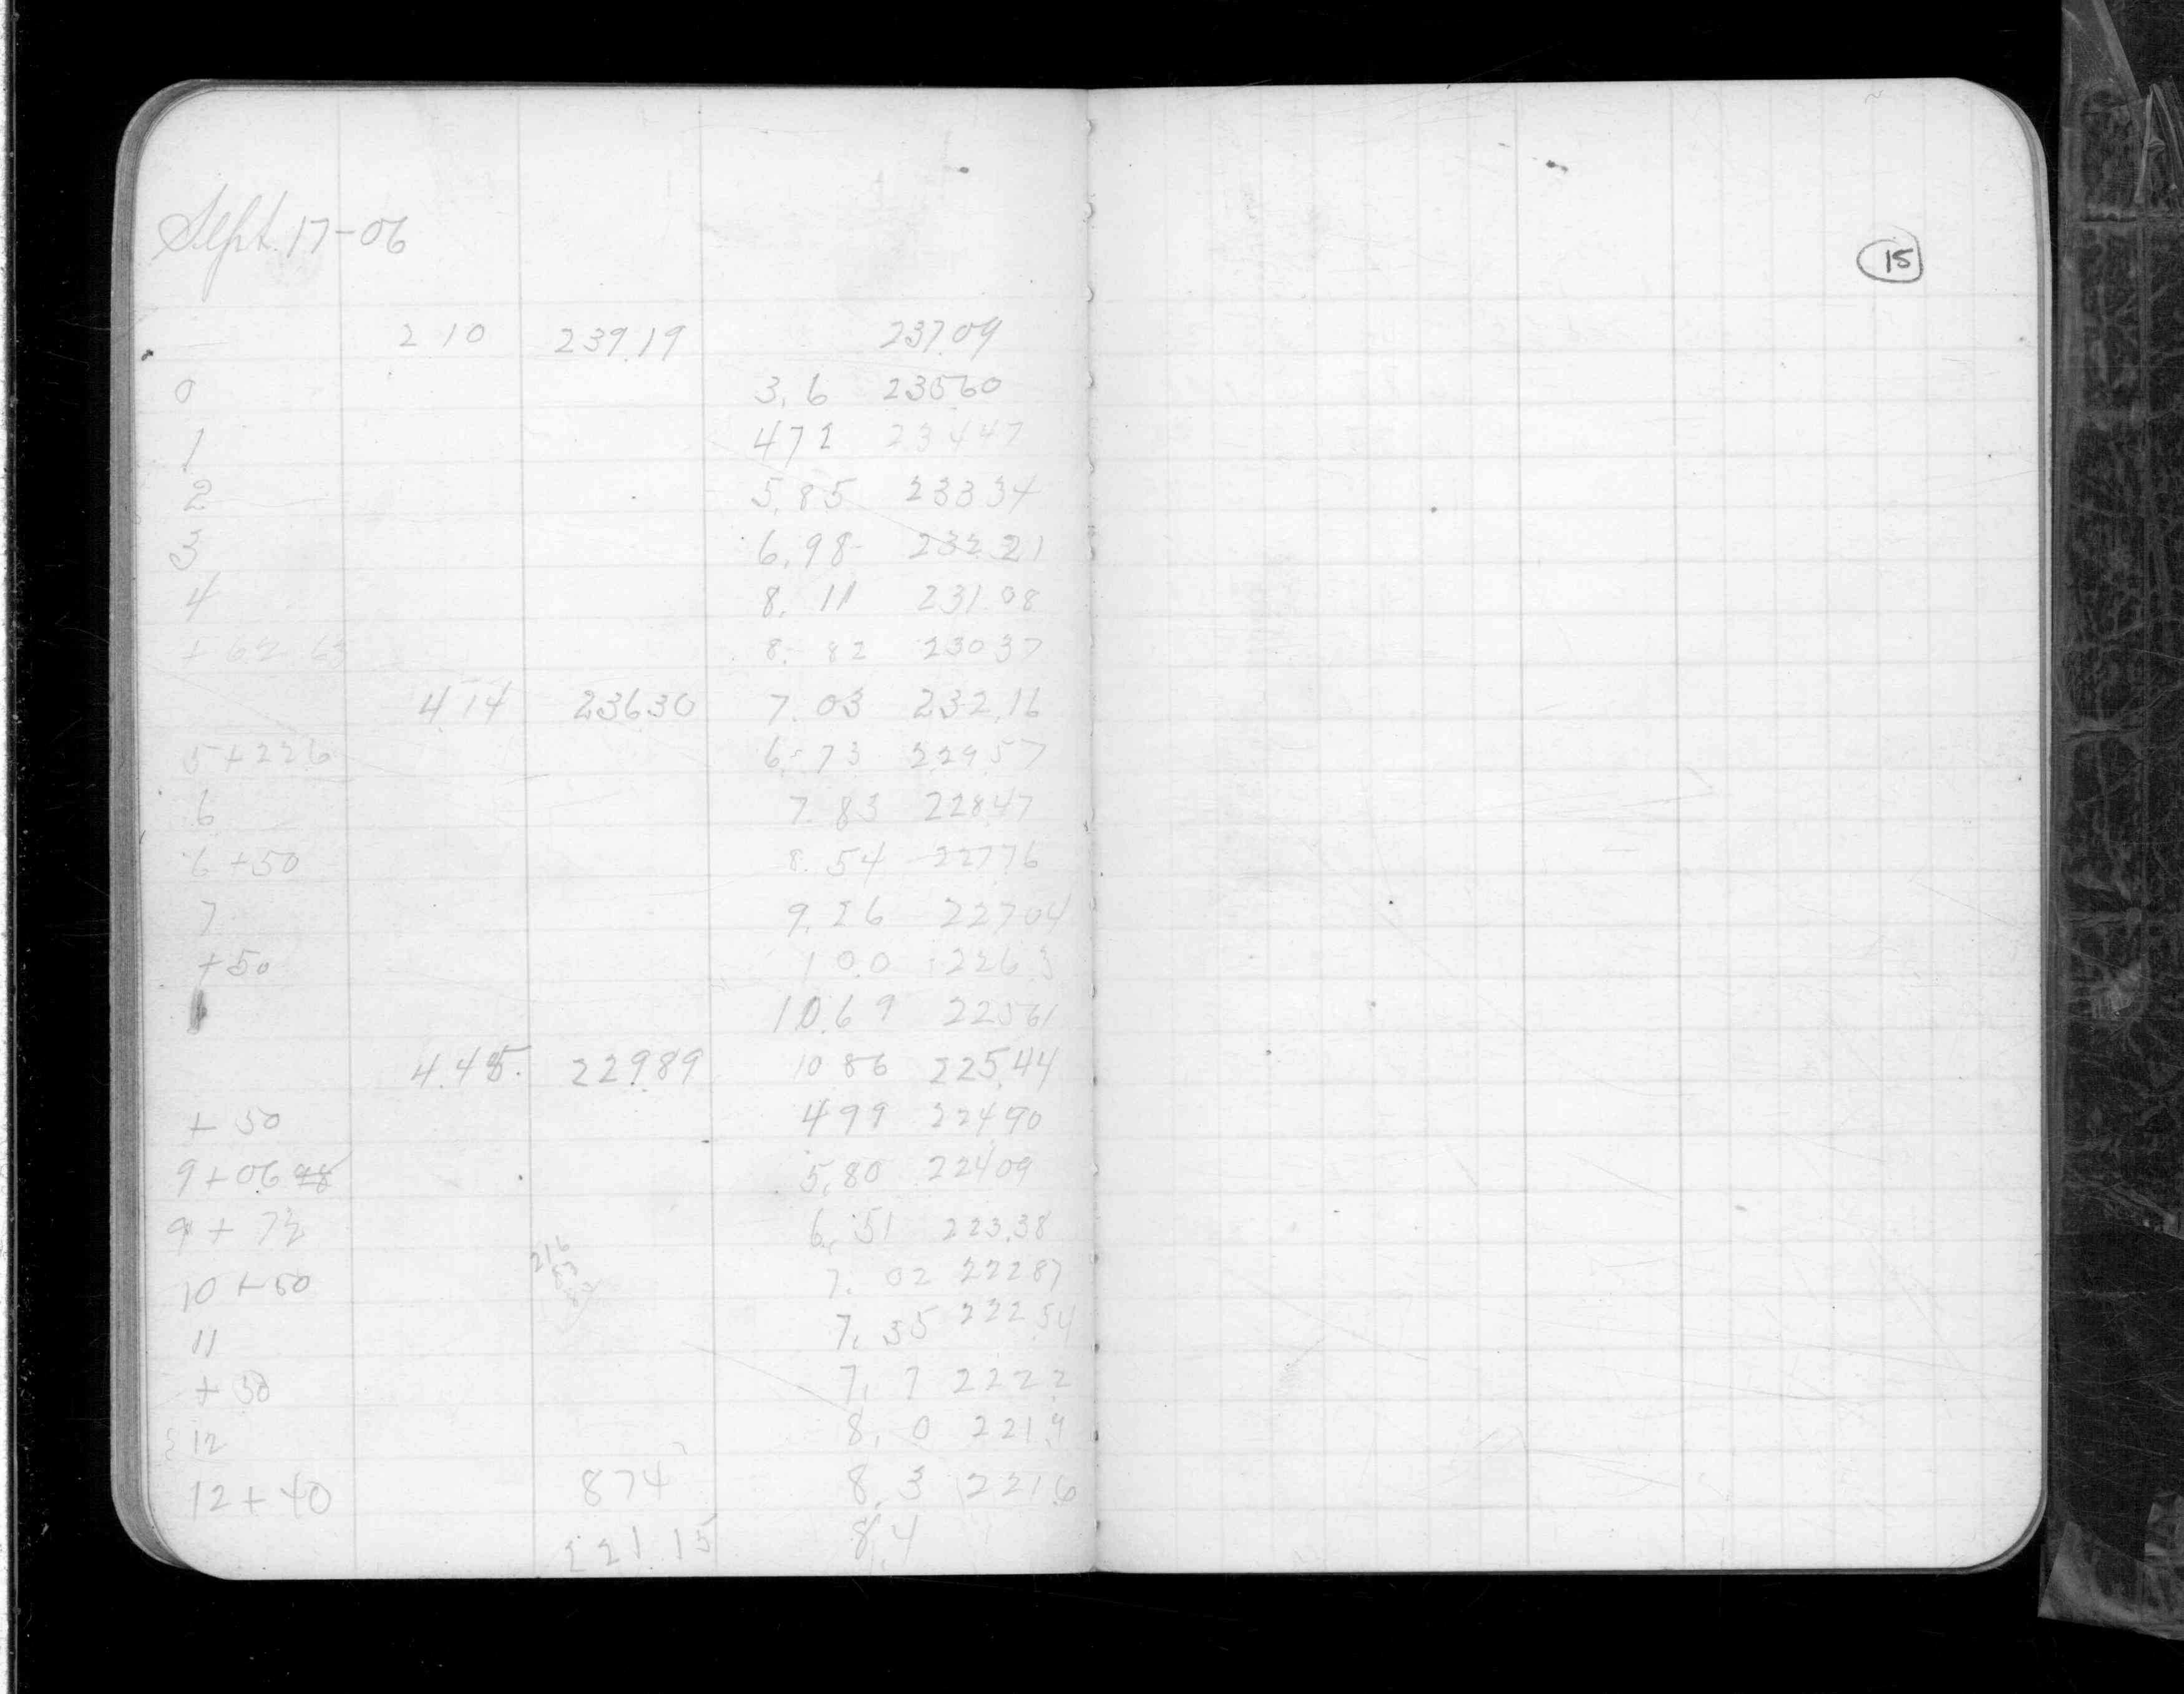 Sept. 17-06
15
2 10 239.19 237.09
0 3.6 23560
1 472 23447
2 5.85 23334
3 6.98 232.21
4 8.11 231.08
+ 62.63 8.82 23037
4.14 23630 7.03 232.16
5+226 6.73 229.57
6 7.83 22847
6+50 8.54 22776
7 9.26 22704
+50 10.0 2263
10.69 22561
4.45. 22989 10 86 225.44
+ 50 499 22490
9+06 5.80 22409
9 + 72 6.51 223.38
10 +50 7.02 22287
11 7.35 222.54
+ 50 7.7 2222
12 8.0 221.9
12 + 40 874 8.3 221.6
221.15 8.4